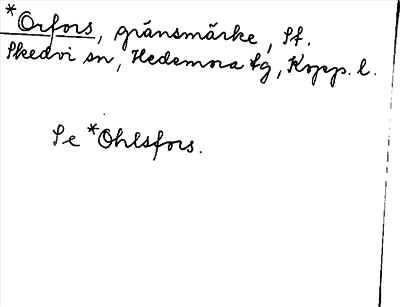 *Orfors, gränsmärke, St.
Skedvi sn, Hedemora tg, Kopp. l.
Se *Ohlsfors.